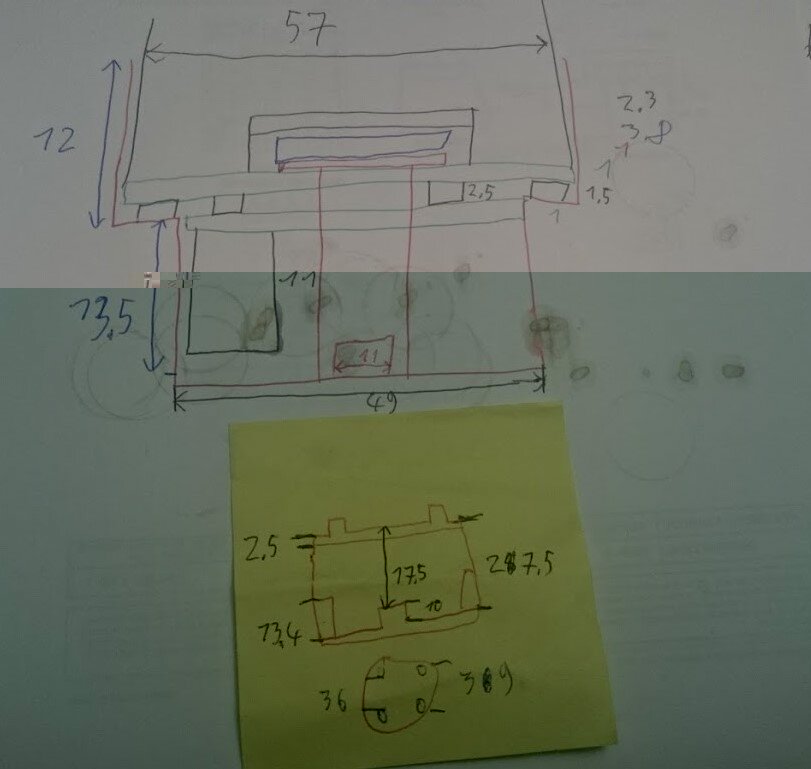 57
12
2.3
3.8
1
1
2,5
1,5
1
13,5
11
11
49
2,5
17,5
10
13,4
36